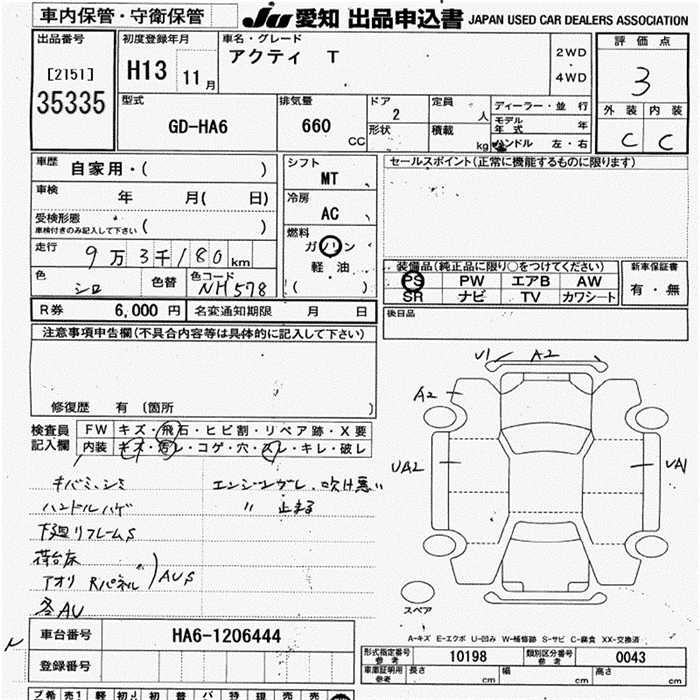 車内保管・守衛保管
JU 愛知 出品申込書 JAPAN USED CAR DEALERS ASSOCIATION
出品番号
[2151]
35335
初度登録年月
H13 11月
車名・グレード
アクティ T
2WD
4WD
評価点
3
外装 内装
C C
型式
GD-HA6
排気量
660
CC
ドア
2
形状
定員
人
積載
kg
ディーラー・並行
モデル年式 年
ハンドル 左・右
車歴 自家用・( )
車検 年 月( 日)
受検形態
車検付きのみ記入して下さい ( )
走行 9万3千180km
色 シロ
色替
色コード NH578
シフト
MT
冷房
AC
燃料
ガソリン
軽油
( )
セールスポイント(正常に機能するものに限ります)
装備品(純正品に限り○をつけてください)
PS PW エアB AW
SR ナビ TV カワシート
新車保証書
有・無
R券 6,000円 名変通知期限 月 日
後日品
注意事項申告欄(不具合内容等は具体的に記入して下さい)
修復歴 有 〔箇所 〕
検査員記入欄
FW キズ・飛石・ヒビ割・リペア跡・X要
内装 キズ・汚レ・コゲ・穴・スレ・キレ・破レ
キバミ、シミ
ハンドルハゲ
下廻リフレームS
荷台床
アオリ Rパネル
AUS
各AU
エンジンヌケレ、吹け悪い
〃 止まる
U1 A2
A2
UA2
UA1
スペア
A-キズ E-エクボ U-凹み W-補修跡 S-サビ C-腐食 XX-交換済
車台番号 HA6-1206444
登録番号
型式指定番号 参考 10198 類別区分番号 参考 0043
車庫証明用 参考 長さ cm 幅 cm 高さ cm